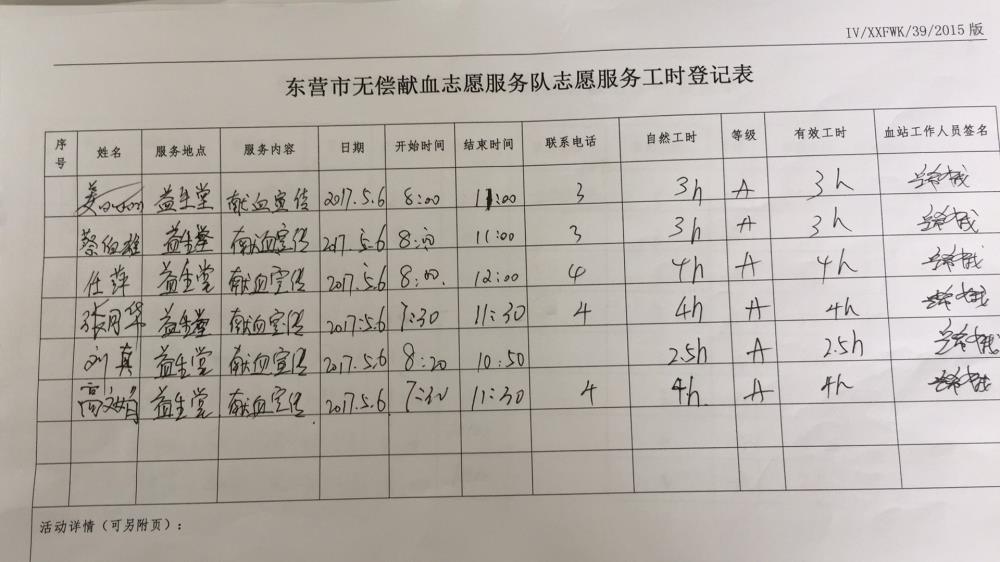 IV/XXFWK/39/2015 版
东营市无偿献血志愿服务队志愿服务工时登记表
序号 姓名 服务地点 服务内容 日期 开始时间 结束时间 联系电话 自然工时 等级 有效工时 血站工作人员签名
益生堂 献血宣传 2017.5.6 8:00 11:00 3 3h A 3h
蔡伯雄 益生堂 献血宣传 2017.5.6 8:00 11:00 3 3h A 3h
任萍 益生堂 献血宣传 2017.5.6 8:00. 12:00 4 4h A 4h
张同华 益生堂 献血宣传 2017.5.6 7:30 11:30 4 4h A 4h
刘真 益生堂 献血宣传 2017.5.6 8:20 10:50 2.5h A 2.5h
益生堂 献血宣传 2017.5.6 7:30 11:30 4 4h A 4h
活动详情（可另附页）：